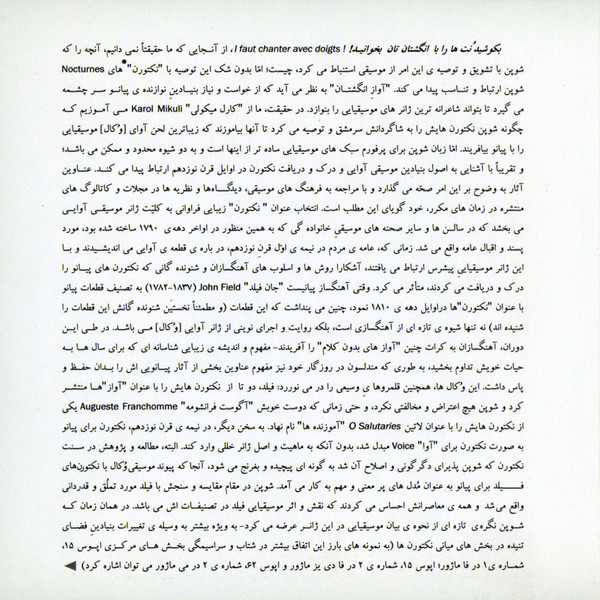 بکوشید نُت ها را با انگشتان تان بخوانید! I faut chanter avec doigts !، از آنجایی که ما حقیقتاً نمی دانیم، آنچه را که
شوپن با تشویق و توصیه ی این امر از موسیقی استنباط می کرد، چیست؛ امّا بدون شک این توصیه با "نکتورن" های Nocturnes
شوپن ارتباط و تناسب پیدا می کند. "آواز انگشتان" به نظر می آید که از خواست و نیاز بنیادین نوازنده ی پیانو سر چشمه
می گیرد تا بتواند شاعرانه ترین ژانر های موسیقیایی را بنوازد. در حقیقت، ما از "کارل میکولی" Karol Mikuli می آموزیم که
چگونه شوپن نکتورن هایش را به شاگردانش سرمشق و توصیه می کرد تا آنها بیاموزند که زیباترین لحن آوای [وُکال] موسیقیایی
را با پیانو بیافریند. امّا زبان شوپن برای پرفورم سبک های موسیقیایی ساده تر از اینها است و به دو شیوه محدود و ممکن می باشد؛
و تقریباً با آشنایی به اصول بنیادین موسیقی آوایی و درک و دریافت نکتورن در اوایل قرن نوزدهم ارتباط پیدا می کند. عناوین
آثار به وضوح بر این امر صحّه می گذارد و با مراجعه به فرهنگ های موسیقی، دیدگاه‌ها و نظریه ها در مجلات و کاتالوگ های
منتشره در زمان های مکرر، خود گویای این مطلب است. انتخاب عنوان " نکتورن" زیبایی فراوانی به کلیّت ژانر موسیقی آوایی
می بخشد که در سالن ها و سایر صحنه های موسیقی خانواده گی که به همین منظور در اواخر دهه ی ۱۷۹۰ ساخته شده بود، مورد
پسند و اقبال عامه واقع می شد. زمانی که، عامه ی مردم در نیمه ی اوّل قرن نوزدهم، در باره ی قطعه ی آوایی می اندیشیدند و با
این ژانر موسیقیایی پیشرس ارتباط می یافتند، آشکارا روش ها و اسلوب های آهنگسازان و شنونده گانی که نکتورن های پیانو را
درک و دریافت می کردند، متأثر می کرد. وقتی آهنگساز پیانیست "جان فیلد" John Field (۱۸۳۷-۱۷۸۲) به تصنیف قطعات پیانو
با عنوان "نکتورن"ها دراوایل دهه ی ۱۸۱۰ نمود، چنین می پنداشت که این قطعات (و مطمئناً نخستین شنونده گانش این قطعات را
شنیده اند) نه تنها شیوه ی تازه ای از آهنگسازی است، بلکه روایت و اجرای نوینی از ژانر آوایی [وُکال] می باشد. در طی این
دوران، آهنگسازان به کرات چنین "آواز های بدون کلام" را آفریدند- مفهوم و اندیشه ی زیبایی شناسانه ای که برای سال ها به
حیات خویش تداوم بخشید، به طوری که مندلسون در روزگار خود نیز مفهوم عناوین بخشی از آثار پیانویی اش را بدان حفظ و
پاس داشت. این وُکال ها، همچنین قلمروهای وسیعی را در می نوررد: فیلد، دو تا از نکتورن هایش را با عنوان "آواز"ها منتشر
کرد و شوپن هیچ اعتراض و مخالفتی نکرد، و حتی زمانی که دوست خویش "آگوست فرانشومه" Augueste Franchomme یکی
از نکتورن هایش را با عنوان لاتین O Salutaries "آموزنده ها" نام نهاد. به سخن دیگر، در نیمه ی قرن نوزدهم، نکتورن برای پیانو
به صورت نکتورن برای "آوا" Voice مبدل شد، بدون آنکه به ماهیت و اصل ژانر خللی وارد کند. البته، مطالعه و پژوهش در سنت
نکتورن که شوپن پذیرای دگرگونی و اصلاح آن شد به گونه ای پیچیده و بغرنج می شود، آنجا که پیوند موسیقی وُکال با نکتورن‌های
فیلد برای پیانو به عنوان مُدل های پر معنی و مهم به کار می آمد. شوپن در مقام مقایسه و سنجش با فیلد مورد تملّق و قدردانی
واقع می‌شد و همه ی معاصرانش احساس می کردند که نقش و اثر موسیقیایی فیلد در تصنیفات اش می باشد. در همان زمان که
شوپن نگره ی تازه ای از نحوه ی بیان موسیقیایی در این ژانر عرضه می کرد- به ویژه بیشتر به وسیله ی تغییرات بنیادین فضای
تنیده در بخش های میانی نکتورن ها (به نمونه های بارز این اتفاق بیشتر در شتاب و سراسیمگی بخش های مرکزی اپوس ۱۵،
شماره ی۱ در فا ماژور؛ اپوس ۱۵، شماره ی ۲ در فا دی یز ماژور و اپوس ۶۲، شماره ی ۲ در می ماژور می توان اشاره کرد) ◄